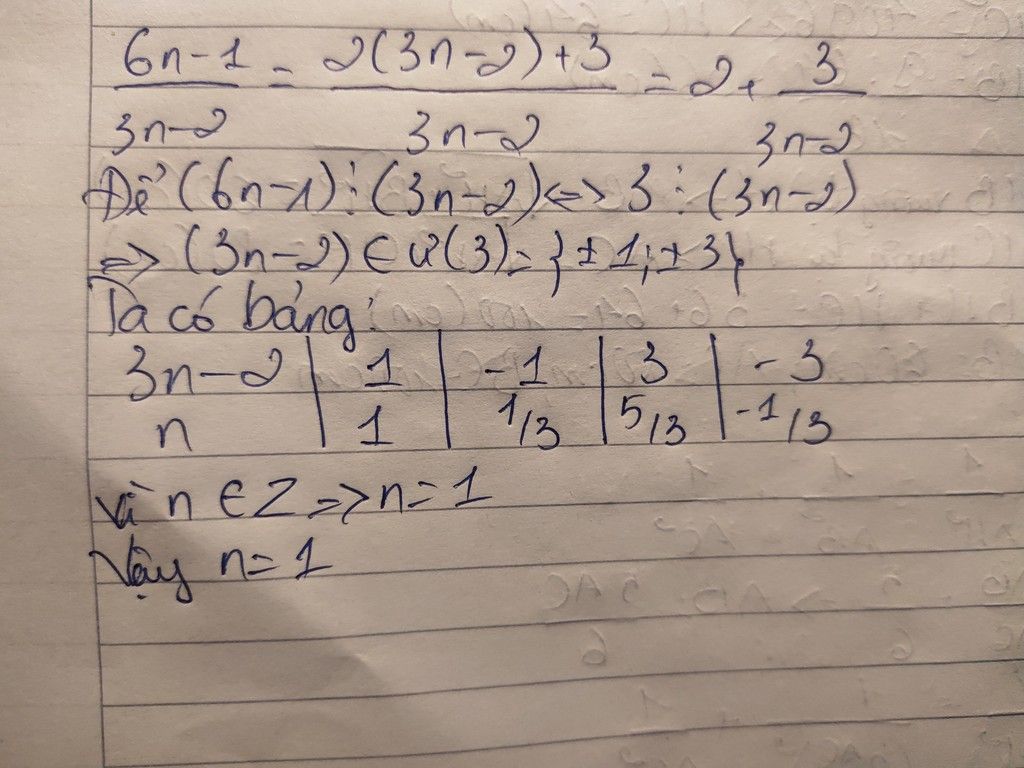 6n-1 / 3n-2 = 2(3n-2)+3 / 3n-2 = 2 + 3 / 3n-2
Để (6n-1) ⋮ (3n-2) <=> 3 ⋮ (3n-2)
=> (3n-2) ∈ Ư(3) = {±1; ±3}
Ta có bảng:
3n-2 | 1 | -1 | 3 | -3
n | 1 | 1/3 | 5/3 | -1/3
Vì n ∈ Z => n = 1
Vậy n = 1